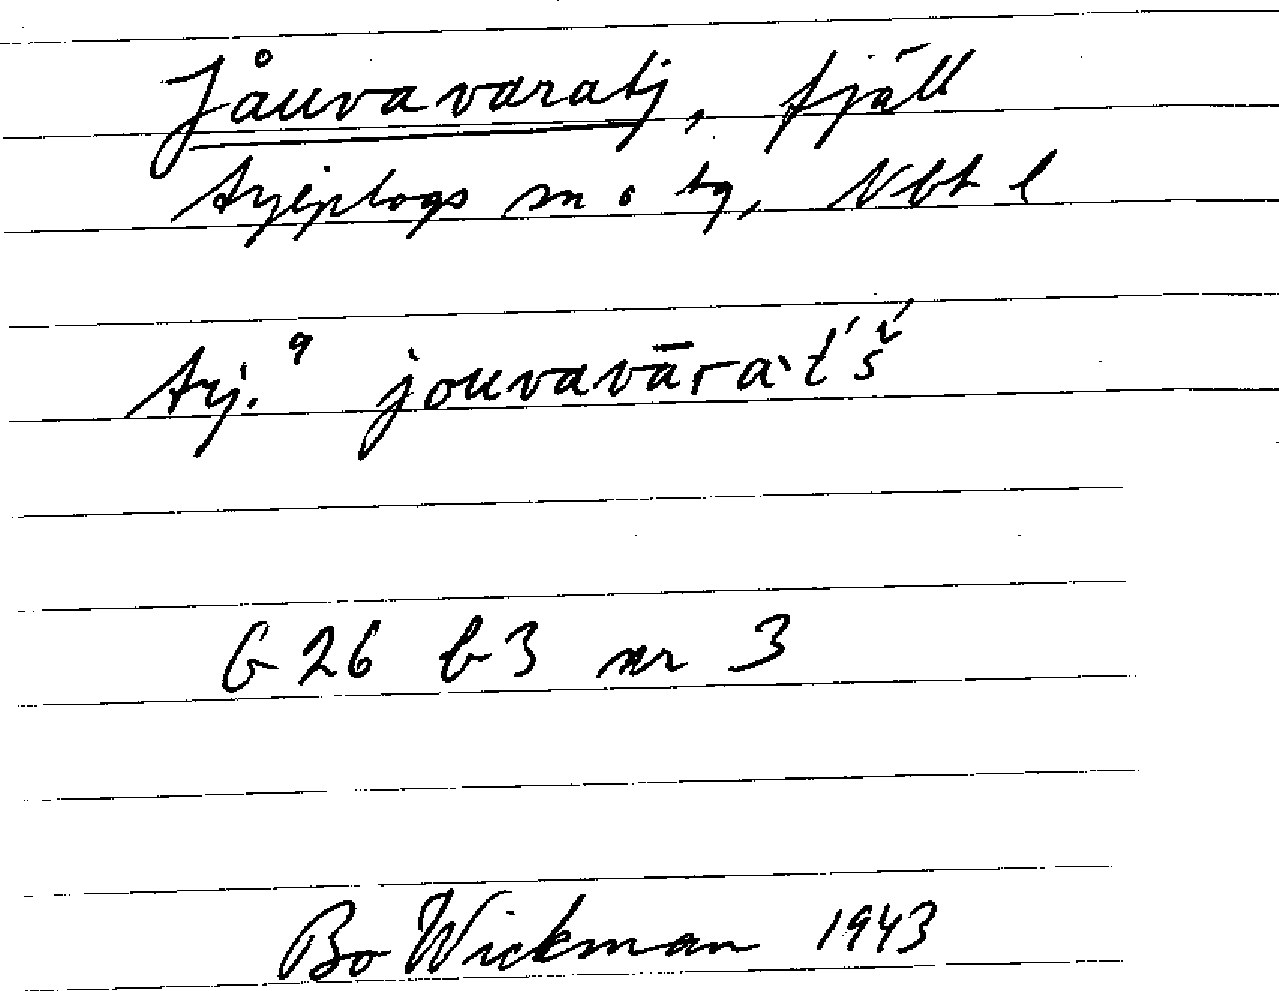 Jåuvavaratj, fjäll
Arjeplogs sn o tg, Nbt l
Arj. 9 jouvavāràt́š́
G 26 b 3 nr 3
Bo Wickman 1943